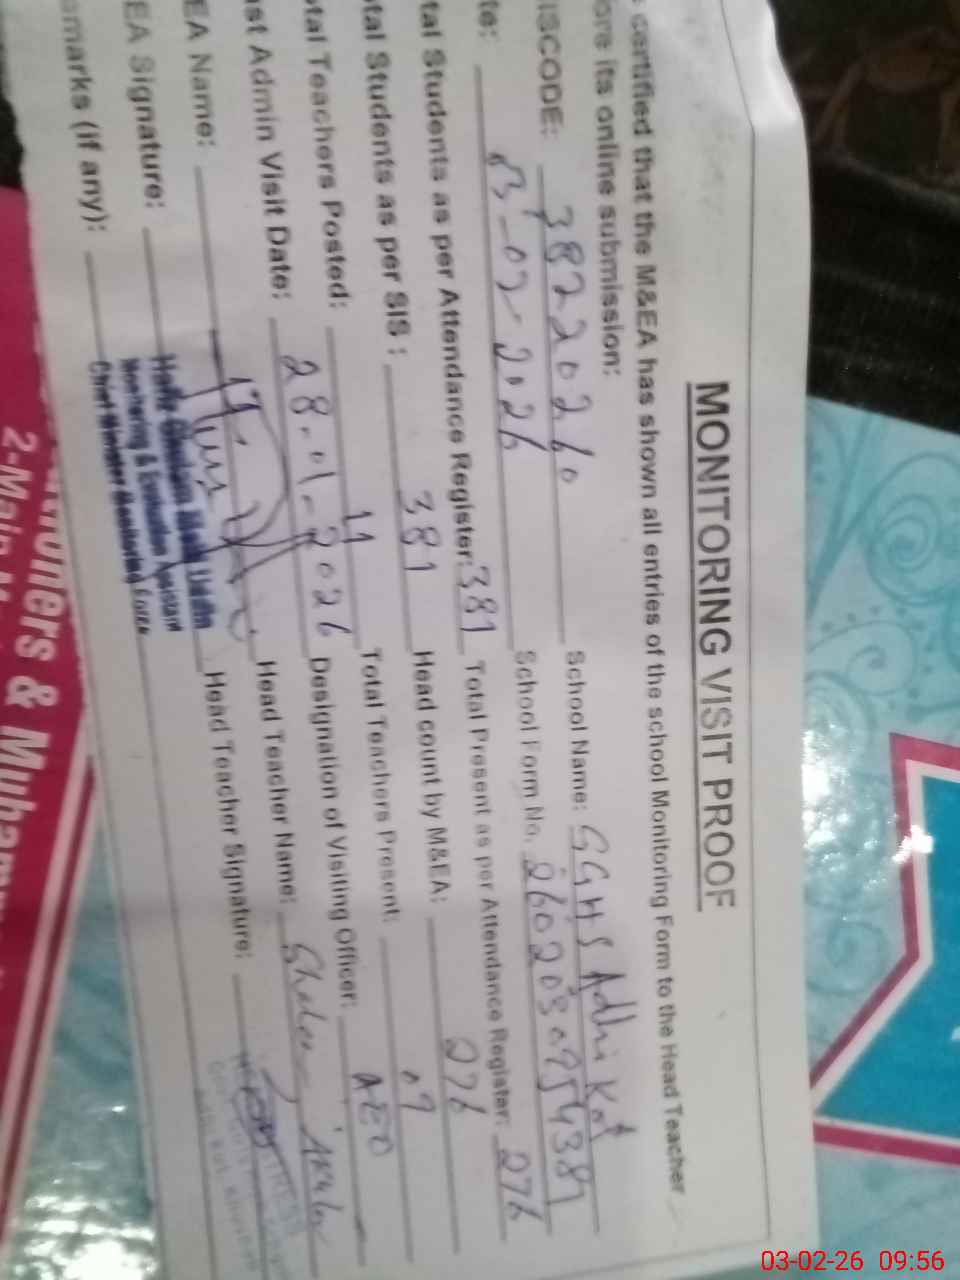 MONITORING VISIT PROOF
certified that the M&EA has shown all entries of the school Monitoring Form to the Head Teacher
ore its online submission:
ISCODE: 38220260 School Name: GGHS Adhi Kot
te: 03-02-2026 School Form No. 2602030954381
tal Students as per Attendance Register: 381 Total Present as per Attendance Register: 276
tal Students as per SIS : 381 Head count by M&EA: 276
tal Teachers Posted: 11 Total Teachers Present: 09
st Admin Visit Date: 28-01-2026 Designation of Visiting Officer: AEO
EA Name: Head Teacher Name:
EA Signature: Head Teacher Signature:
marks (if any):
Monitoring & Evaluation Assistant
Chief Minister Monitoring Force
2-Main
& Muhamm
03-02-26 09:56